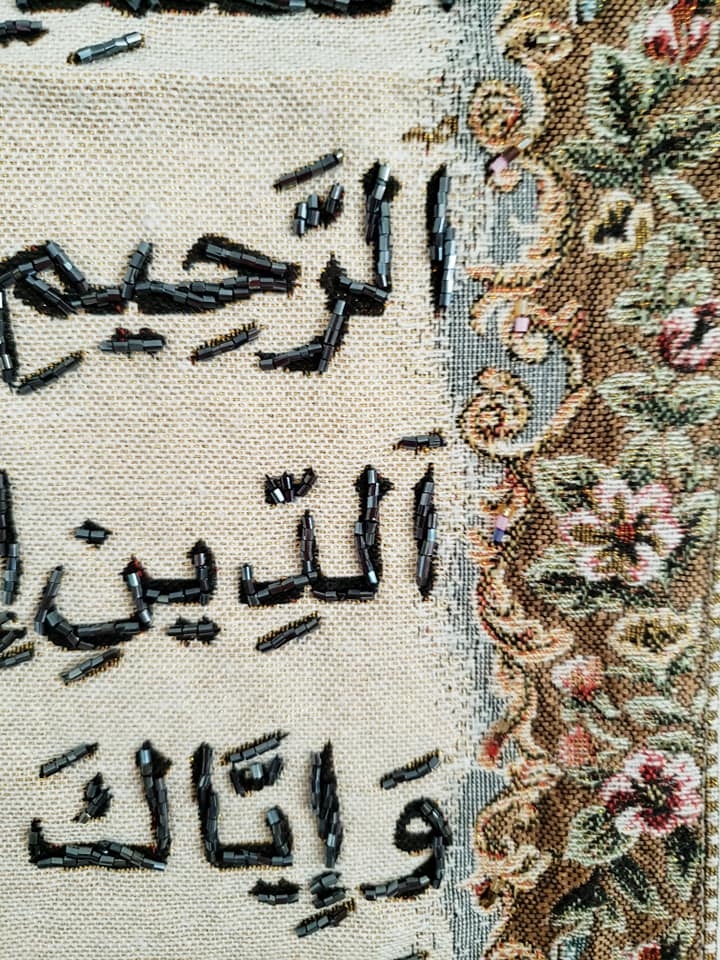 الرَّحِيمِ
اَلدِّينِ
وَإِيَّاكَ